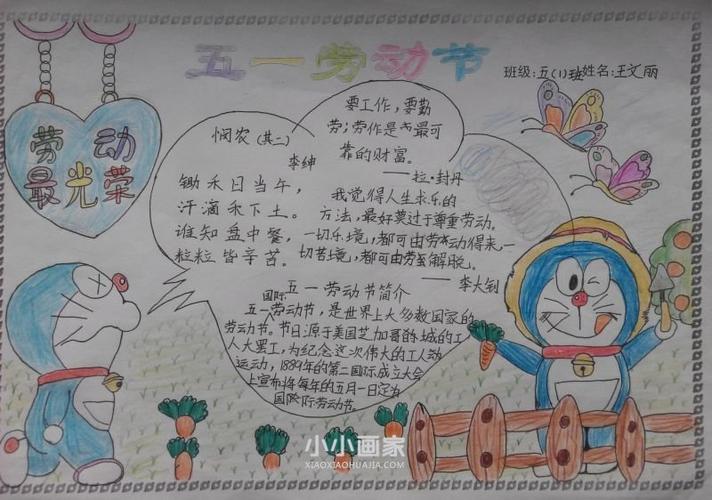 五一劳动节
班级:五(1)班姓名:王文丽
劳动
最光荣
悯农(其二)
李绅
锄禾日当午,
汗滴禾下土。
谁知盘中餐,
粒粒皆辛苦。
要工作,要勤
劳;劳作是最可
靠的财富。
——拉·封丹
我觉得人生求乐的
方法,最好莫过于尊重劳动。
一切乐境,都可由劳动得来,一
切苦境,都可由劳解脱。
——李大钊
五一劳动节简介
国际
五一劳动节,是世界上大多数国家的
劳动节。节日源于美国芝加哥城的工
人大罢工,为纪念这次伟大的工人动
运动,1889年的第二国际成立大会
上宣布将每年的五月一日定为
国际劳动节。
小小画家
XIAOXIAOHUAJIA.COM